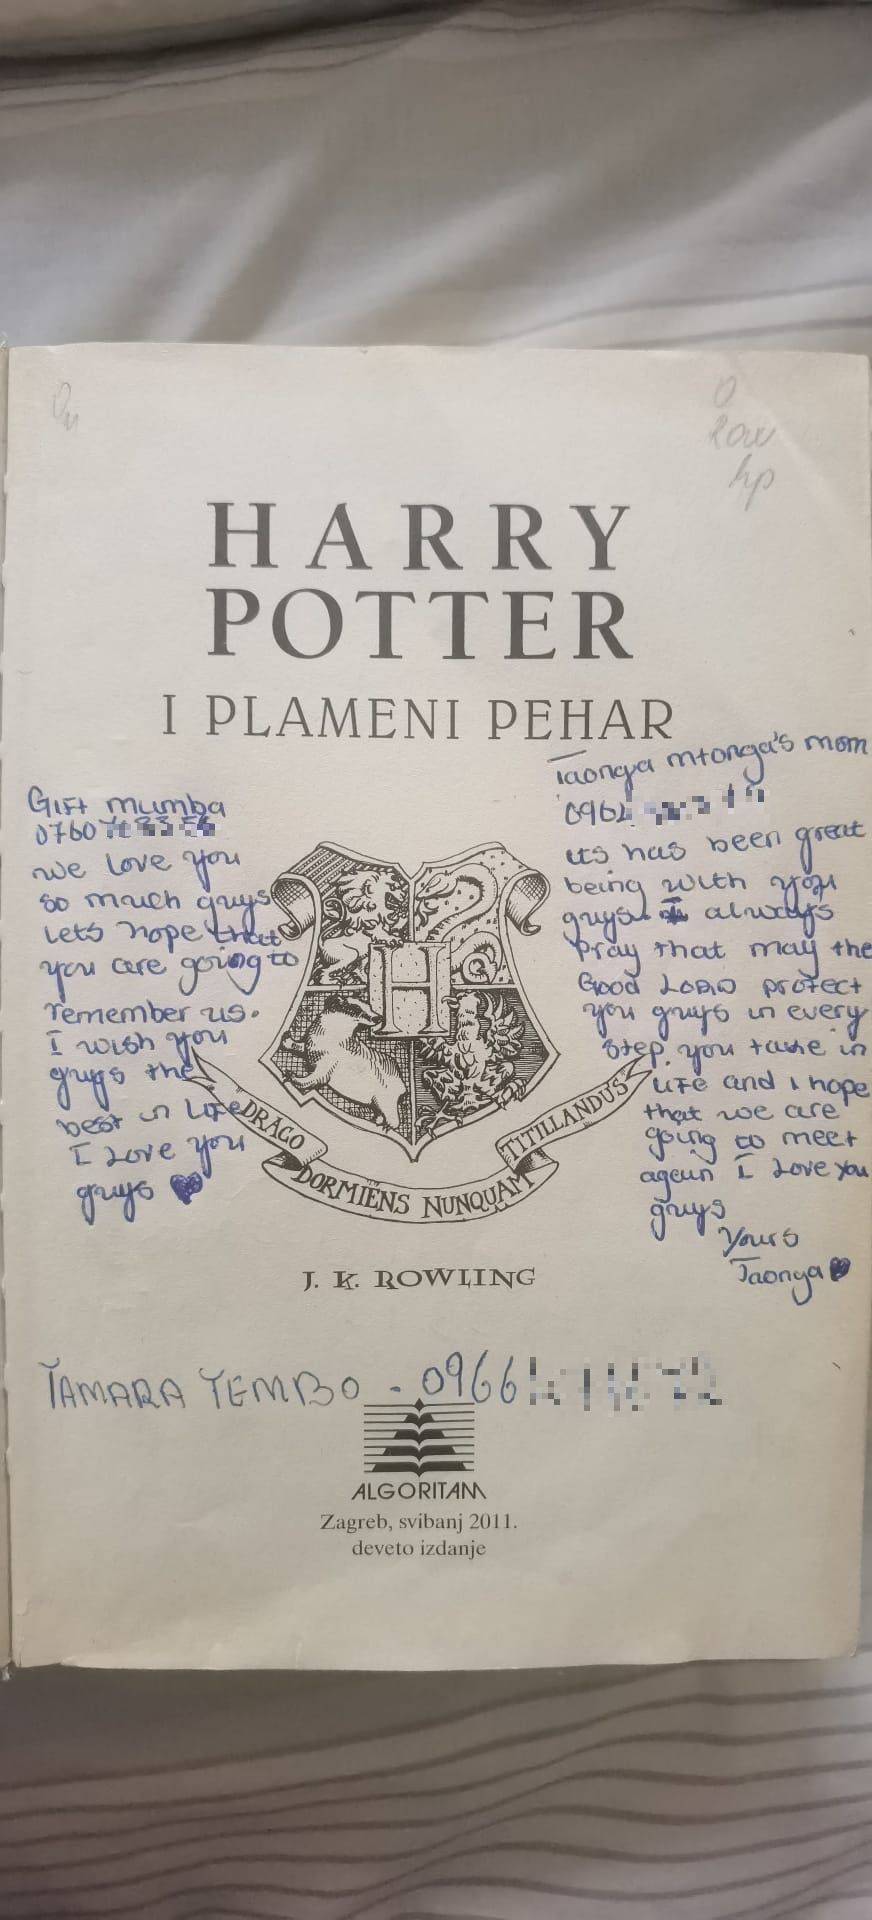 On
O
Row
hp
HARRY
POTTER
I PLAMENI PEHAR
Gift mumba
0760
we love you
so much guys
Lets hope that
you are going to
remember us.
I wish you
guys the
best in Life
I Love you
guys
Taonga mtonga's mom
096
its has been great
being with you
guys I always
Pray that may the
Good LORD protect
you guys in every
step you take in
life and i hope
that we are
going to meet
again I Love you
guys
Yours
Taonga
H
DRACO
DORMIENS NUNQUAM
TITILLANDUS
J. K. ROWLING
TAMARA TEMBO - 0966
ALGORITAM
Zagreb, svibanj 2011.
deveto izdanje